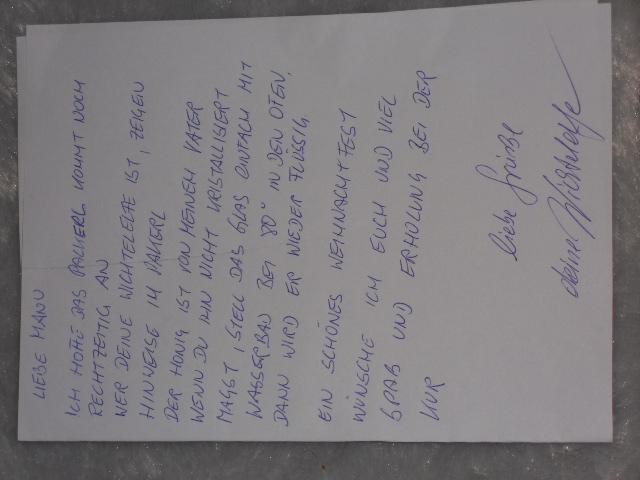 LIEBE MANU
ICH HOFFE DAS PACKERL KOMMT NOCH
RECHTZEITIG AN
WER DEINE WICHTELELFE IST, ZEIGEN
HINWEISE IM PAKERL
DER HONIG IST VON MEINEM VATER
WENN DU IHN NICHT KRISTALLISIERT
MAGST, STELL DAS GLAS EINFACH MIT
WASSERBAD BEI 80° IN DEN OFEN,
DANN WIRD ER WIEDER FLÜSSIG
EIN SCHÖNES WEIHNACHTFEST
WÜNSCHE ICH EUCH UND VIEL
SPAß UND ERHOLUNG BEI DER
KUR
liebe Grüße
deine Wichtelelfe